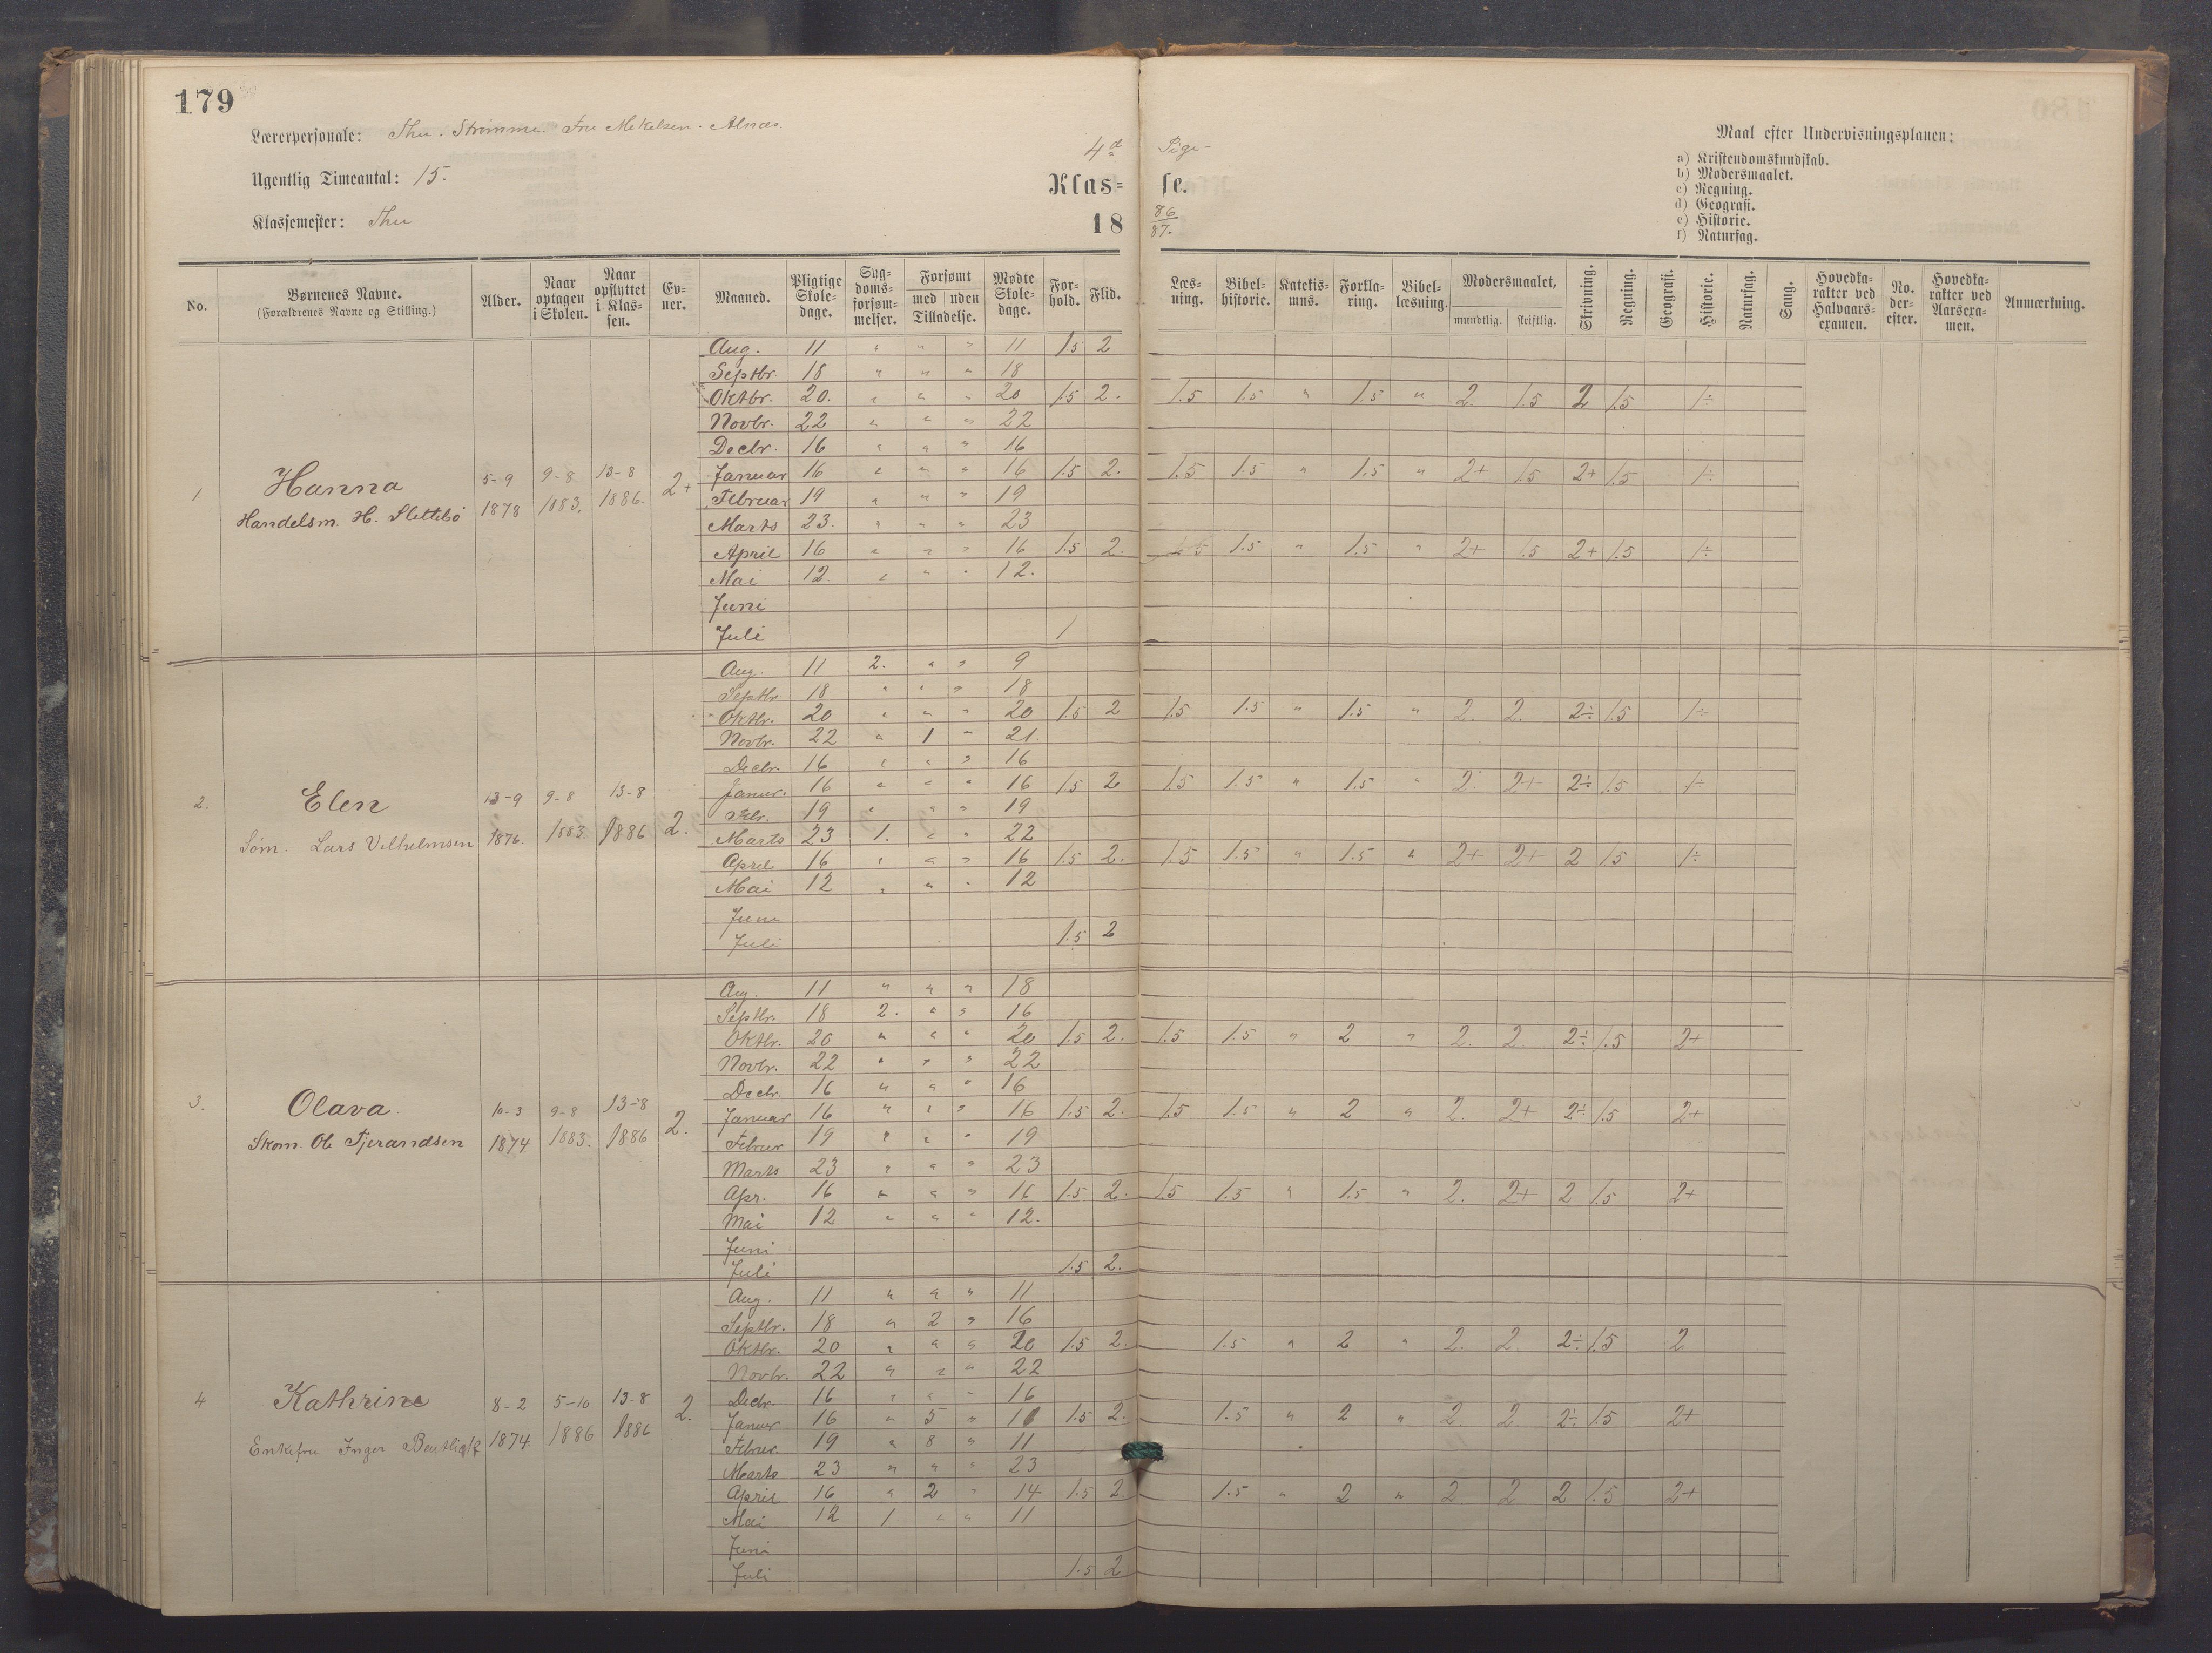 179
Lærerpersonale: Thu. Strømme. Fru Mekelsen. Alnæs.
Ugentlig Timeantal: 15.
Klassemester: Thu
4d Pige-
Klas= se.
18 86/87.
Maal efter Undervisningsplanen:
a) Kristendomskundskab.
b) Modersmaalet.
c) Regning.
d) Geografi.
e) Historie.
f) Naturfag.
No. Børnenes Navne. (Forældrenes Navne og Stilling.) Alder. Naar optagen i Skolen. Naar opflyttet i Klas=sen. Ev=ner. Maaned. Pligtige Skole=dage. Syg=doms=forsøm=melser. Forsømt med uden Tilladelse. Mødte Skole=dage. For=hold. Flid. Læs=ning. Bibel=historie. Katekis=mus. Forkla=ring. Bibel=læsning. Modersmaalet, mundtlig. skriftlig. Skrivning. Regning. Geografi. Historie. Naturfag. Sang. Hovedka=rakter ved Halvaars=examen. No. der=efter. Hovedka=rakter ved Aarsexa=men. Anmærkning.
1 Hanna
Handelsm. H. Slettebø
5-9 1878 9-8 1883. 13-8 1886. 2+
Aug. 11 " " " 11 1.5 2
Septbr. 18 " " " 18
Oktbr. 20. " " " 20 1.5 2. 1.5 1.5 " 1.5 " 2. 1.5 2 1.5 1÷
Novbr. 22 " " " 22
Decbr. 16 " " " 16
Januar 16 " " " 16 1.5 2. 1.5 1.5 " 1.5 " 2+ 1.5 2+ 1.5 1÷
Februar 19 " " " 19
Marts 23. " " " 23
April 16 " " " 16 1.5 2. 1.5 1.5 " 1.5 " 2+ 1.5 2+ 1.5 1÷
Mai 12. " " " 12.
Juni
Juli 1
2. Elen
Søm. Lars Vilhelmsen
13-9 1876. 9-8 1883. 13-8 1886 2.
Aug. 11 2. " " 9
Septbr 18 " " " 18
Oktbr. 20 " " " 20 1.5 2 1.5 1.5 " 1.5 " 2. 2. 2÷ 1.5 1÷
Novbr. 22 " 1 " 21.
Decbr. 16 " " " 16
Januar. 16 " " " 16 1.5 2 1.5 1.5 " 1.5 " 2. 2+ 2÷ 1.5 1÷
Febr. 19 " " " 19
Marts 23 1. " " 22
April 16 " " " 16 1.5 2. 1.5 1.5 " 1.5 " 2+ 2+ 2 1.5 1÷
Mai 12 " " " 12
Juni
Juli 1.5 2
3. Olava.
Skom. Ole Tjerandsen
10-3 1874 9-8 1883. 13-8 1886 2.
Aug. 11 " " " 18
Septbr. 18 2. " " 16
Oktbr. 20 " " " 20 1.5 2. 1.5 1.5 " 2 " 2. 2. 2÷ 1.5 2+
Novbr. 22 " " " 22
Decbr. 16 " " " 16
Januar 16 " " " 16 1.5 2. 1.5 1.5 " 2 " 2. 2+ 2÷ 1.5 2+
Februar 19 " " " 19
Marts 23 " " " 23
Apr. 16 " " " 16 1.5 2. 1.5 1.5 " 1.5 " 2. 2+ 2 1.5 2+
Mai 12 " " " 12.
Juni
Juli 1.5 2.
4 Kathrine
Enkefru Inger
8-2 1874. 5-10 1886 13-8 1886 2.
Aug. 11 " " " 11
Septbr. 18 " 2 " 16
Oktbr. 20 " " " 20 1.5 2. 1.5 " 2 " 2. 2. 2÷ 1.5 2
Novbr. 22 " " " 22
Decbr. 16 " " " 16
Januar 16 " 5 " 1.5 2. 1.5 " 2 " 2 2. 2÷ 1.5 2+
Februar. 19 " 8 " 11
Marts 23 " " " 23
April 16 " 2 " 14 1.5 2. 1.5 " 2 " 2. 2 2 1.5 2+
Mai 12 1 " " 11
Juni
Juli 1.5 2